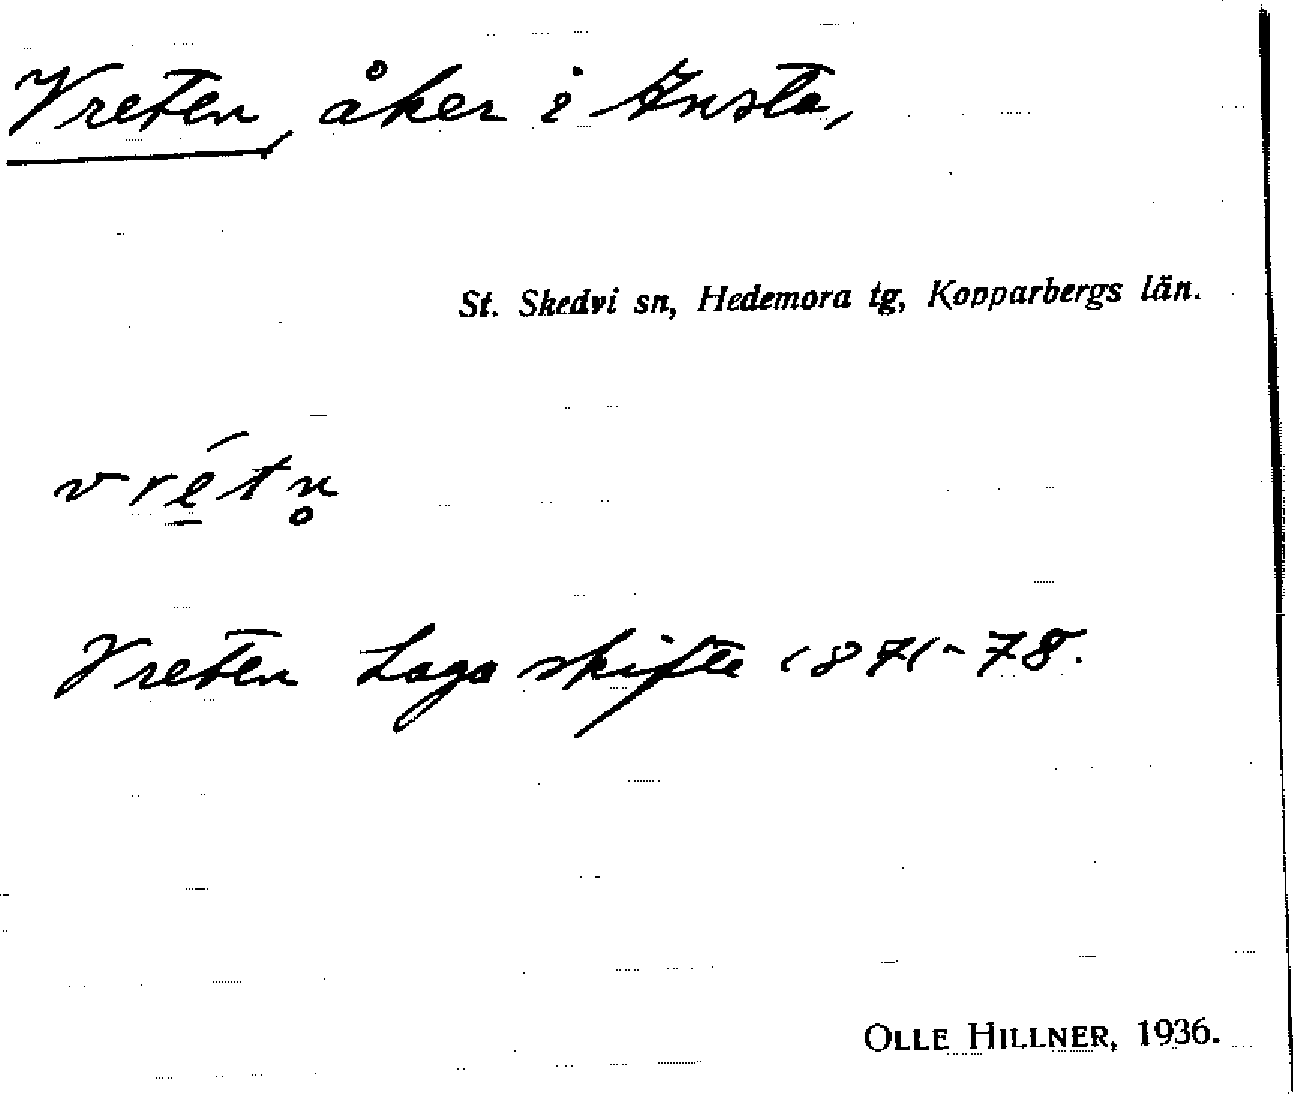 Vreten, åker i Knsta,
St. Skedvi sn, Hedemora tg, Kopparbergs län.
vre̱´tn̥
Vreten Laga skifte 1871-78.
OLLE HILLNER, 1936.